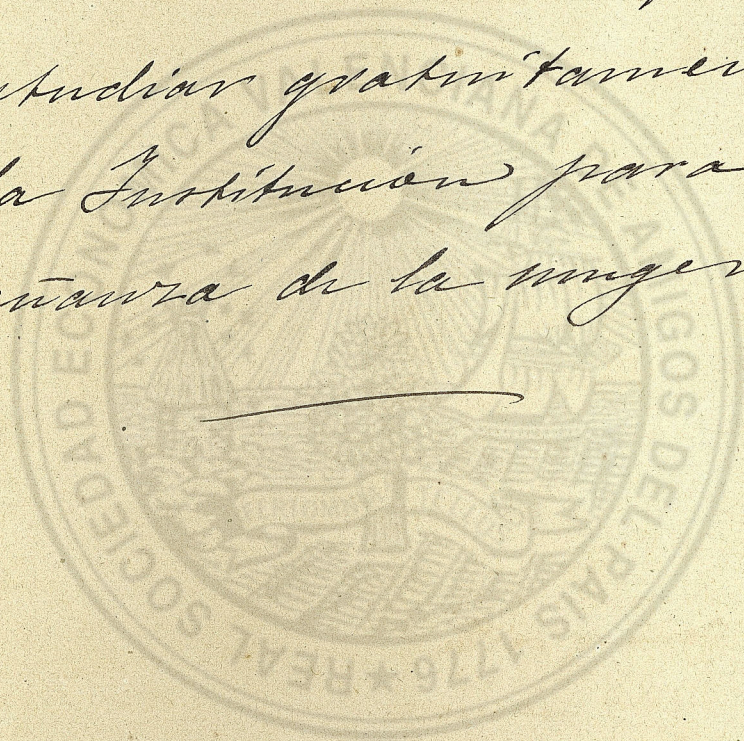 studiar gratuitamen
la Institución para
eñanza de la muger
REAL SOCIEDAD ECONÓMICA VALENCIANA DE AMIGOS DEL PAIS 1776